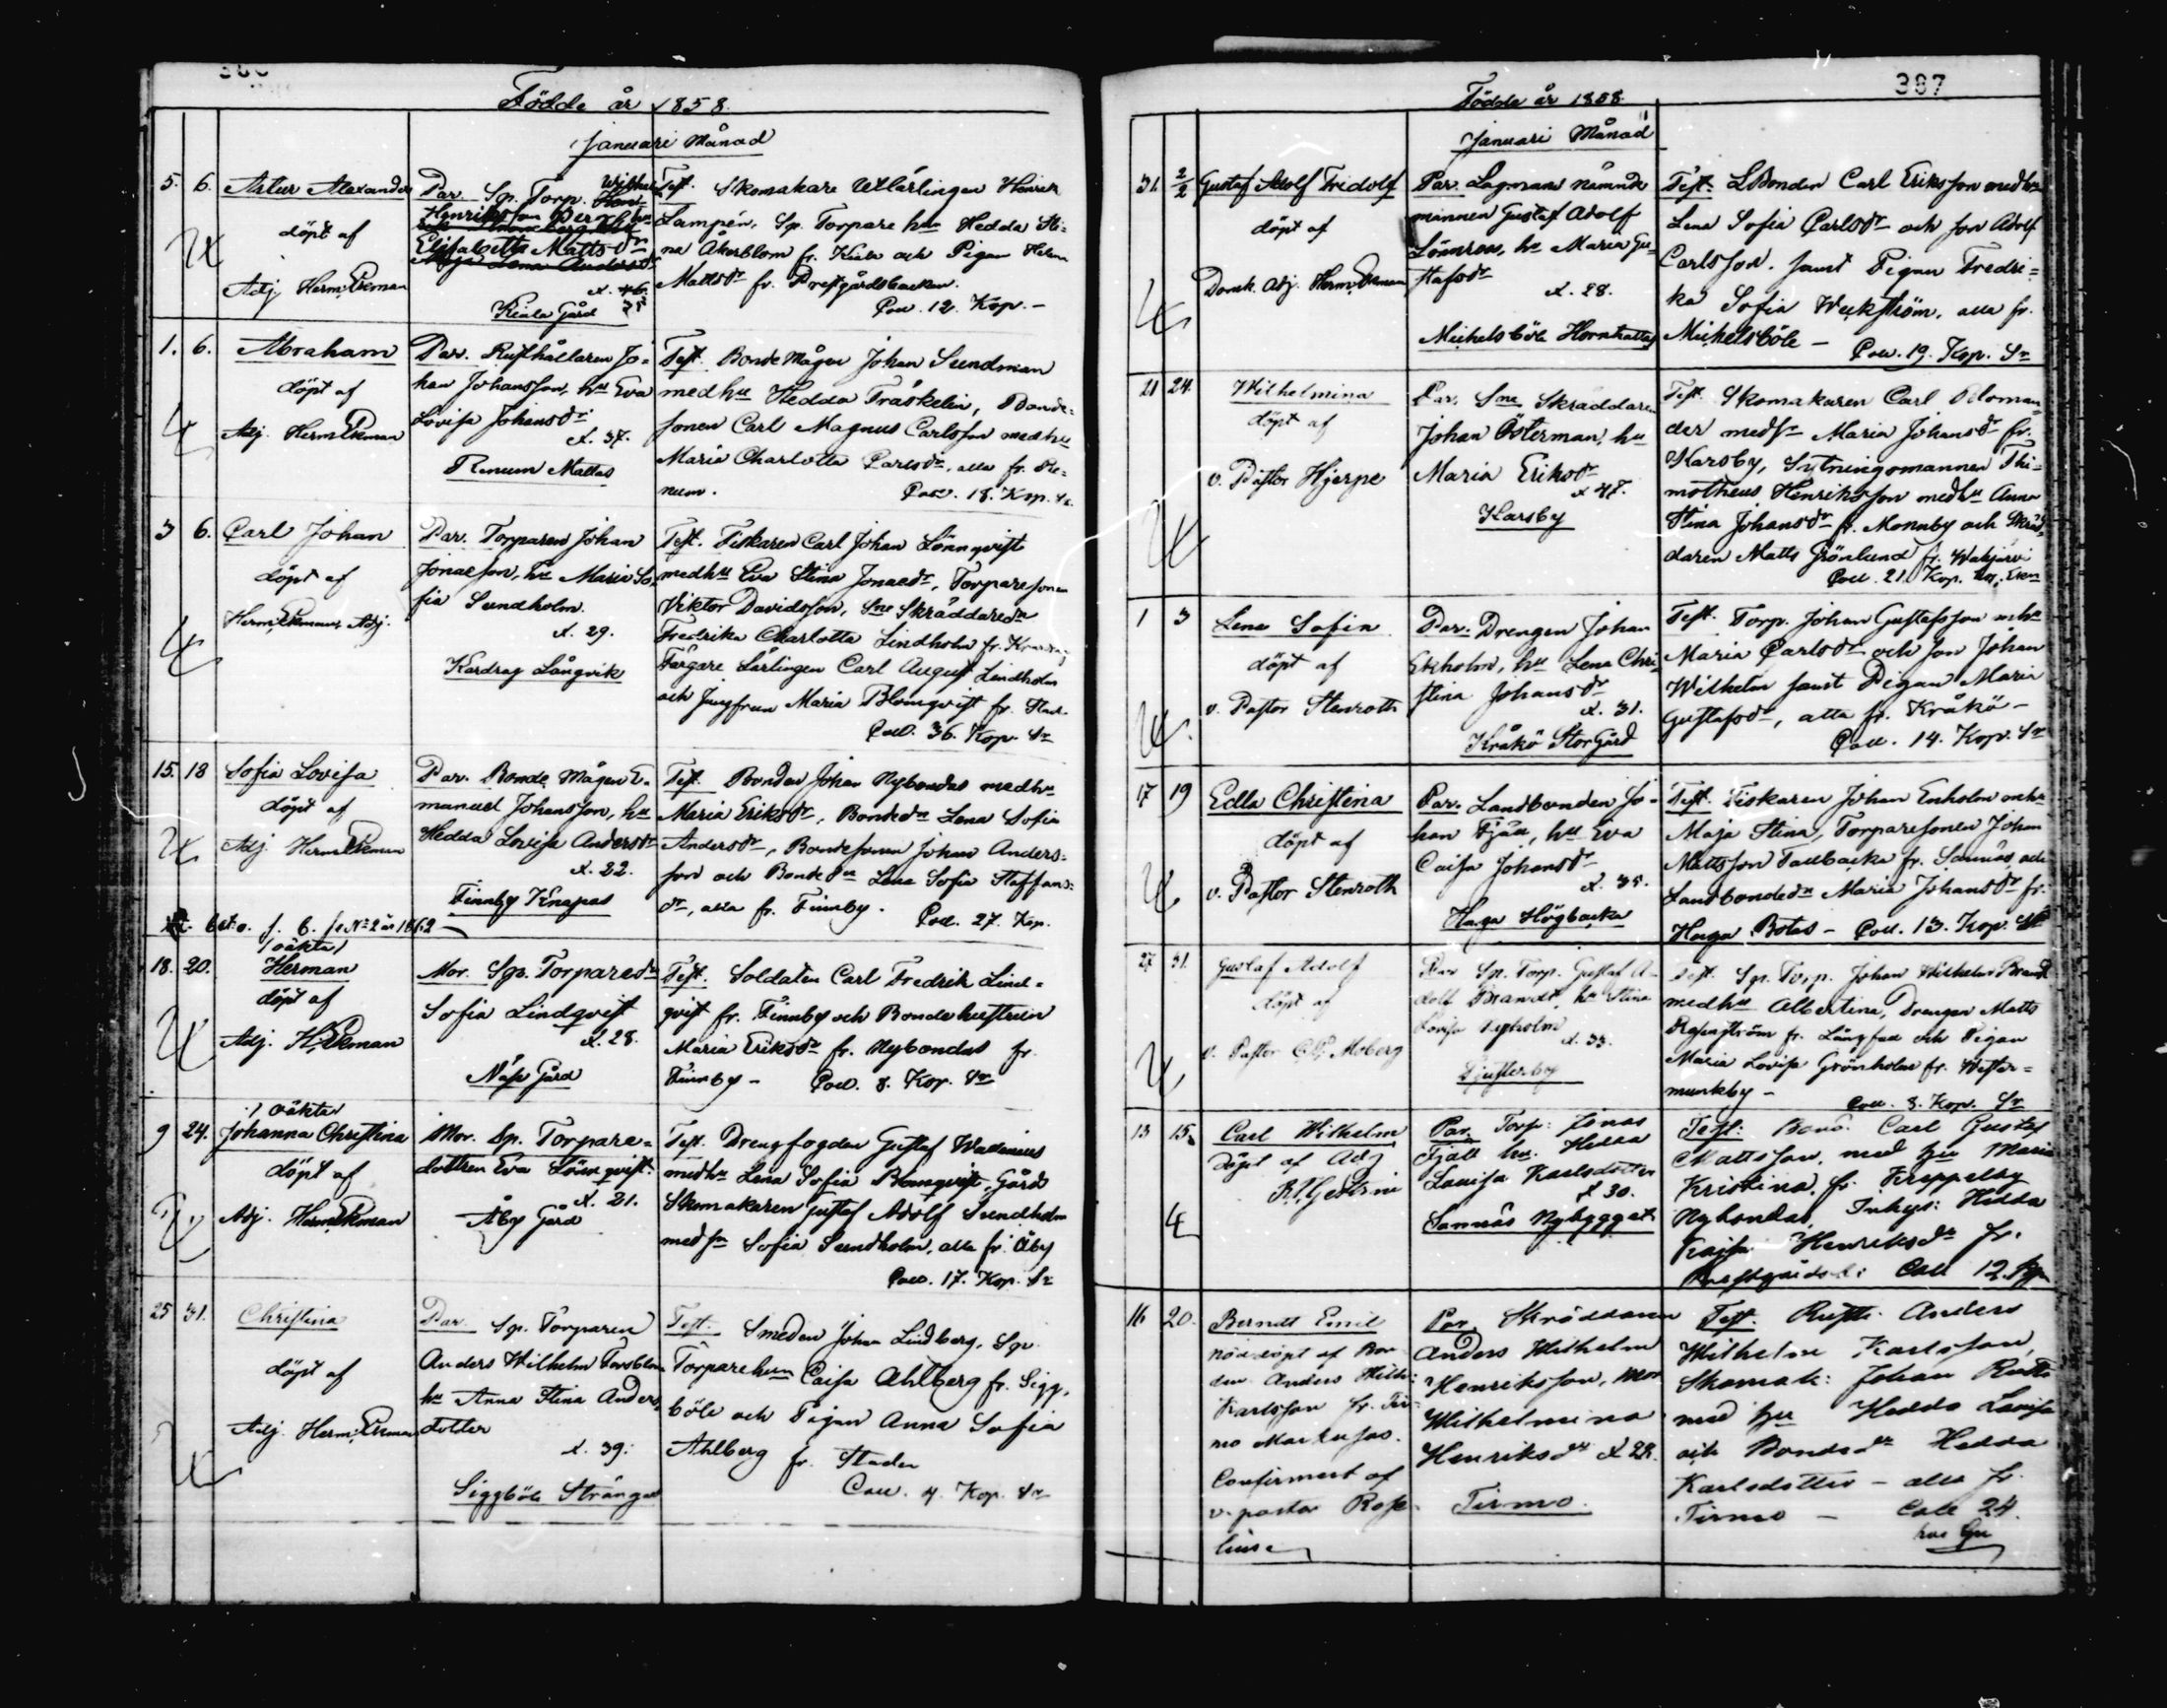 Födde år 1858.
Januari Månad
5. 6. Artur Alexander
döpt af
Adj. Herm. Ekman
Par. Sp. Torp. Wilhelm
Henriksson Berg hu
Elisabetha Mattsdr
Kiala Gård
Test. Skomakare Utlärlingen Henrik
Lampén, Sp. Torpare hun Hedda Sti-
na Åkerblom fr. Kiala och Pigan Helena
Mattsdr fr. Prestgårdsbacken.
Coll. 12. Kop. –
1. 6. Abraham
döpt af
Adj. Herm Ekman
Par. Rusthållaren Jo-
han Johansson, hu Eva
Lovisa Johansdr
Æ. 37.
Renum Mattas
Test. Bonde Mågen Johan Sundman
med hu Hedda Träskelin, Bonde-
sonen Carl Magnus Carlsson med hu
Maria Charlotta Carlsdr, alla fr. Re-
num.
Coll. 18. Kop. Sr
3 6. Carl Johan
döpt af
Herm. Ekman, Adj.
Par. Torparen Johan
Jonasson, hu Maria So-
fia Sundholm.
Æ. 29.
Kardrag Långvik
Test. Fiskaren Carl Johan Lönnqvist
med hu Eva Stina Jonaedr, Torparesonen
Viktor Davidsson, Sne Skräddaredn
Fredrika Charlotta Lindholm fr. Kardrag
Färgare Lärlingen Carl August Lindholm
och Jungfrun Maria Blomqvist fr. Stad.
Coll. 36. Kop. Sr
15. 18 Sofia Lovisa
döpt af
Adj. Herm Ekman
Par. Bonde Mågen E-
manuel Johansson, hu
Hedda Lovisa Andersdr
Æ. 22.
Finnby Knapas
Test. Bonden Johan Nybondas med hu
Maria Eriksdr, Bondedn Lena Sofia
Andersdr, Bondesonen Johan Anders-
son och Bondedn Lena Sofia Staffans-
dr, alla fr. Finnby. Coll. 27. Kop.
f. 6. se No 2 år 1862
/oäkta/
18. 20. Herman
döpt af
Adj. H. Ekman
Mor. Sp. Torparedn
Sofia Lindqvist
Æ. 28.
Näse Gård
Test. Soldaten Carl Fredrik Lind-
qvist fr. Finnby och Bonde hustrun
Maria Eriksdr fr. Nybondas fr.
Finnby – Coll. 8. Kop. Sr
/oäkta/
9 24. Johanna Christina
döpt af
Adj. Herm Ekman
Mor. Sp. Torpare-
dottren Eva Lönnqvist.
Æ. 21.
Åby Gård
Test. Drengfogden Gustaf Wadenius
med hu Lena Sofia Blomqvist, Gårds
Skomakaren Gustaf Adolf Sundholm
med fr Sofia Sundholm, alla fr. Åby
Coll. 17. Kop. Sr
25 31. Christina
döpt af
Adj. Herm. Ekman
Par. Sp. Torparen
Anders Wilhelm Forsblom
hu Anna Stina Anders-
dotter
Æ. 39.
Siggböle Strångas
Test. Smeden Johan Lindberg, Sp.
Torpare hun Caisa Ahlberg fr. Sigg-
böle och Pigan Anna Sofia
Ahlberg fr. Staden
Coll. 4. Kop. Sr
387
Födde år 1858.
Januari Månad
31. 2/2 Gustaf Adolf Fridolf
döpt af
Domk. Adj. Herm. Ekman
Par. Lagmans nämnde
mannen Gustaf Adolf
Lönnroos, hu Maria Gu-
stafsdr
Æ. 28.
Mickelsböle Hornhattas
Test. LBonden Carl Eriksson med hu
Lena Sofia Carlsdr och son Adolf
Carlsson, samt Pigan Fredri-
ka Sofia Weckström, alla fr.
Mickelsböle – Coll. 19. Kop. Sr
21 24. Wilhelmina
döpt af
v. Pastor Hjerpe
Par. Sne Skräddaren
Johan Österman, hu
Maria Eriksdr
Æ 47.
Karsby
Test. Skomakaren Carl Feloman-
der med fr Maria Johansdr fr.
Karsby, Sytningsmannen Thi-
motheus Henriksson med hu Anna
Stina Johansdr fr. Monnby och Skräd-
daren Matts Grönlund fr. Wakjärvi
Coll. 21. Kop.
1 3 Lena Sofia
döpt af
v. Pastor Stenroth
Par. Drengen Johan
Ekholm, hu Lena Chri-
stina Johansdr
Æ. 31.
Kråkö StorGård
Test. Torp. Johan Gustafsson m hu
Maria Carlsdr och son Johan
Wilhelm samt Pigan Maria
Gustafsdr, alla fr. Kråkö –
Coll. 14. Kop. Sr
17 19 Edla Christina
döpt af
v. Pastor Stenroth
Par. Landbonden Jo-
han Fjäll, hu Eva
Caisa Johansdr
Æ. 35.
Haga Högbacka
Test. Fiskaren Johan Enholm m hu
Maja Stina, Torparesonen Johan
Mattsson Tallbacka fr. Sannäs och
Landbondedn Maria Johansdr fr.
Haga Botas – Coll. 13. Kop. Sr
27 31. Gustaf Adolf
döpt af
v. Pastor Moberg
Par Sp. Torp. Gustaf A-
dolf Brandt, hu Stina
Lovisa Nyholm
Æ. 33.
Gjusterby
Test. Sp. Torp. Johan Wilhelm Brandt
med hu Albertina, Drengen Matts
Rosenström fr. Långfall och Pigan
Maria Lovisa Grönholm fr. Wester-
munkby – Coll. 8. Kop. Sr
13 15. Carl Wilhelm
Döpt af Adj
Par. Torp. Jonas
Fjäll hu. Hedda
Lovisa Karlsdotter
Æ 30.
Sannäs Nybygget
Test: Bond. Carl Gustaf
Mattsson, med hu Maria
Kristina, fr. Kreppelby
Nybondas, Inhys: Hedda
Kajsa Henriksdr fr.
Coll 12. Kop
16 20. Berndt Emil
nöddöpt af Bon-
den Anders Wilh:
Karlsson fr. Tir-
mo Markusas.
Confirmert af
v. pastor Rose-
lius
Par. Skräddaren
Anders Wilhelm
Henriksson, Mor
Wilhelmina
Henriksdr Æ 28.
Tirmo.
Test. Rusth. Anders
Wilhelm Karlsson,
Skomak: Johan
med hu Hedda Lovisa
och Bondedr Hedda
Karlsdotter – alla fr.
Tirmo – Coll 24.